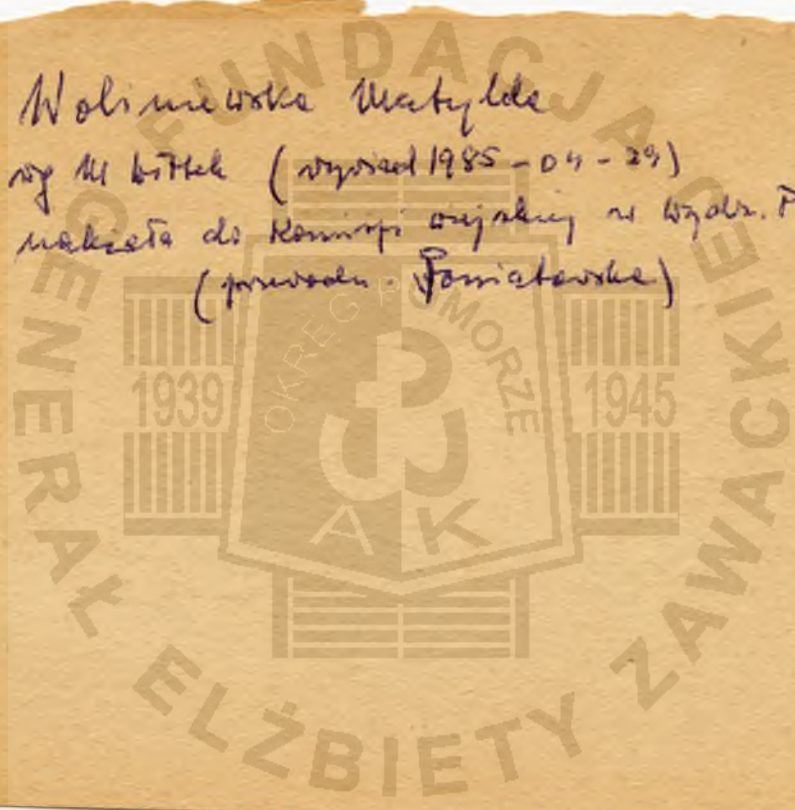 Woliniewska Matylda
wg M Wittek (wywiad 1985-04-29)
należała do Komisji wiejskiej w Wydz. P
(przewodn. Poniatowska)
FUNDACJA
GENERAŁ ELŻBIETY ZAWACKIEJ
OKRĘG POMORZE
1939 1945
AK